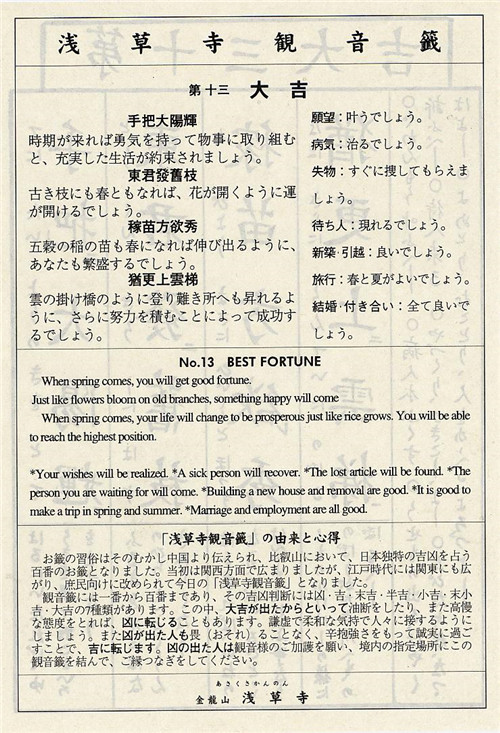 浅草寺観音籤
第十三 大吉
手把大陽輝
時期が来れば勇気を持って物事に取り組む
と、充実した生活が約束されましょう。
東君發舊枝
古き枝にも春ともなれば、花が開くように運
が開けるでしょう。
稼苗方欲秀
五穀の稲の苗も春になれば伸び出るように、
あなたも繁盛するでしょう。
猶更上雲梯
雲の掛け橋のように登り難き所へも昇れるよ
うに、さらに努力を積むことによって成功す
るでしょう。
願望：叶うでしょう。
病気：治るでしょう。
失物：すぐに捜してもらえま
しょう。
待ち人：現れるでしょう。
新築・引越：良いでしょう。
旅行：春と夏がよいでしょう。
結婚・付き合い：全て良いで
しょう。
No.13 BEST FORTUNE
When spring comes, you will get good fortune.
Just like flowers bloom on old branches, something happy will come
When spring comes, your life will change to be prosperous just like rice grows. You will be able
to reach the highest position.
*Your wishes will be realized. *A sick person will recover. *The lost article will be found. *The
person you are waiting for will come. *Building a new house and removal are good. *It is good to
make a trip in spring and summer. *Marriage and employment are all good.
「浅草寺観音籤」の由来と心得
お籤の習俗はそのむかし中国より伝えられ、比叡山において、日本独特の吉凶を占う
百番のお籤となりました。当初は関西方面で広まりましたが、江戸時代には関東にも広
がり、庶民向けに改められて今日の「浅草寺観音籤」となりました。
観音籤には一番から百番まであり、その吉凶判断には凶・吉・末吉・半吉・小吉・末小
吉・大吉の7種類があります。この中、大吉が出たからといって油断をしたり、また高慢
な態度をとれば、凶に転じることもあります。謙虚で柔和な気持で人々に接するように
しましょう。また凶が出た人も畏（おそれ）ることなく、辛抱強さをもって誠実に過ご
すことで、吉に転じます。凶の出た人は観音様のご加護を願い、境内の指定場所にこの
観音籤を結んで、ご縁つなぎをしてください。
あさくさかんのん
金龍山 浅草寺